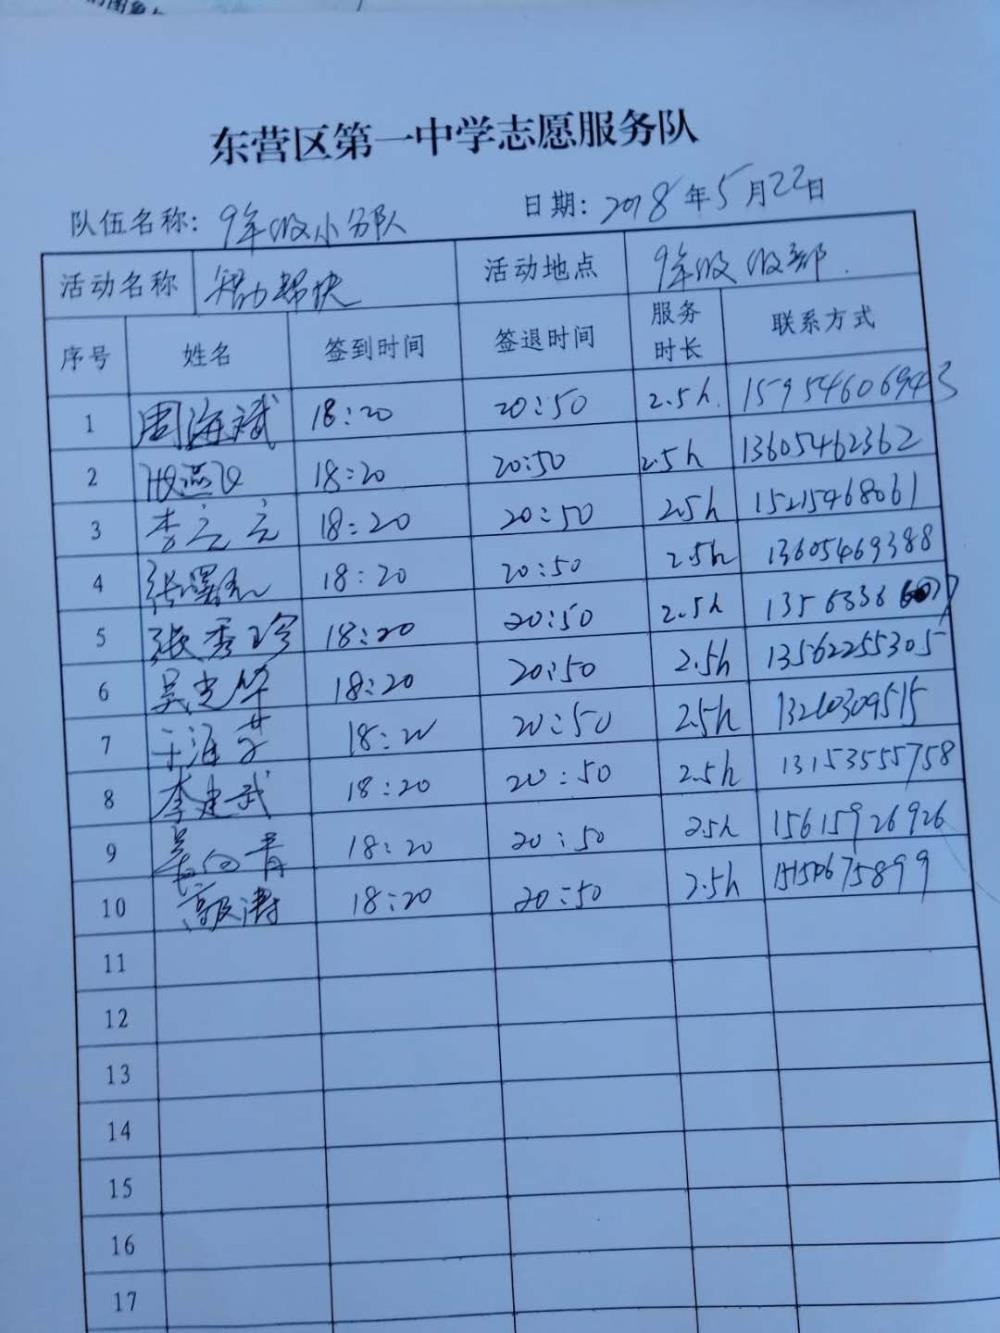 东营区第一中学志愿服务队
队伍名称: 9年级小分队 日期: 2018年5月22日
活动名称 活动地点 9年级级部.
序号 姓名 签到时间 签退时间 服务时长 联系方式
1 周海斌 18:20 20:50 2.5h. 15954606943
2 张燕飞 18:20 20:50 2.5h 13605462362
3 李立立 18:20 20:50 2.5h 15215468061
4 18:20 20:50 2.5h 13605469388
5 张秀珍 18:20 20:50 2.5h
6 吴光华 18:20 20:50 2.5h 13562255305
7 于海芬 18:20 20:50 2.5h 13210309515
8 李建武 18:20 20:50 2.5h 13153555758
9 18:20 20:50 2.5h 15615926926
10 18:20 20:50 2.5h
11
12
13
14
15
16
17